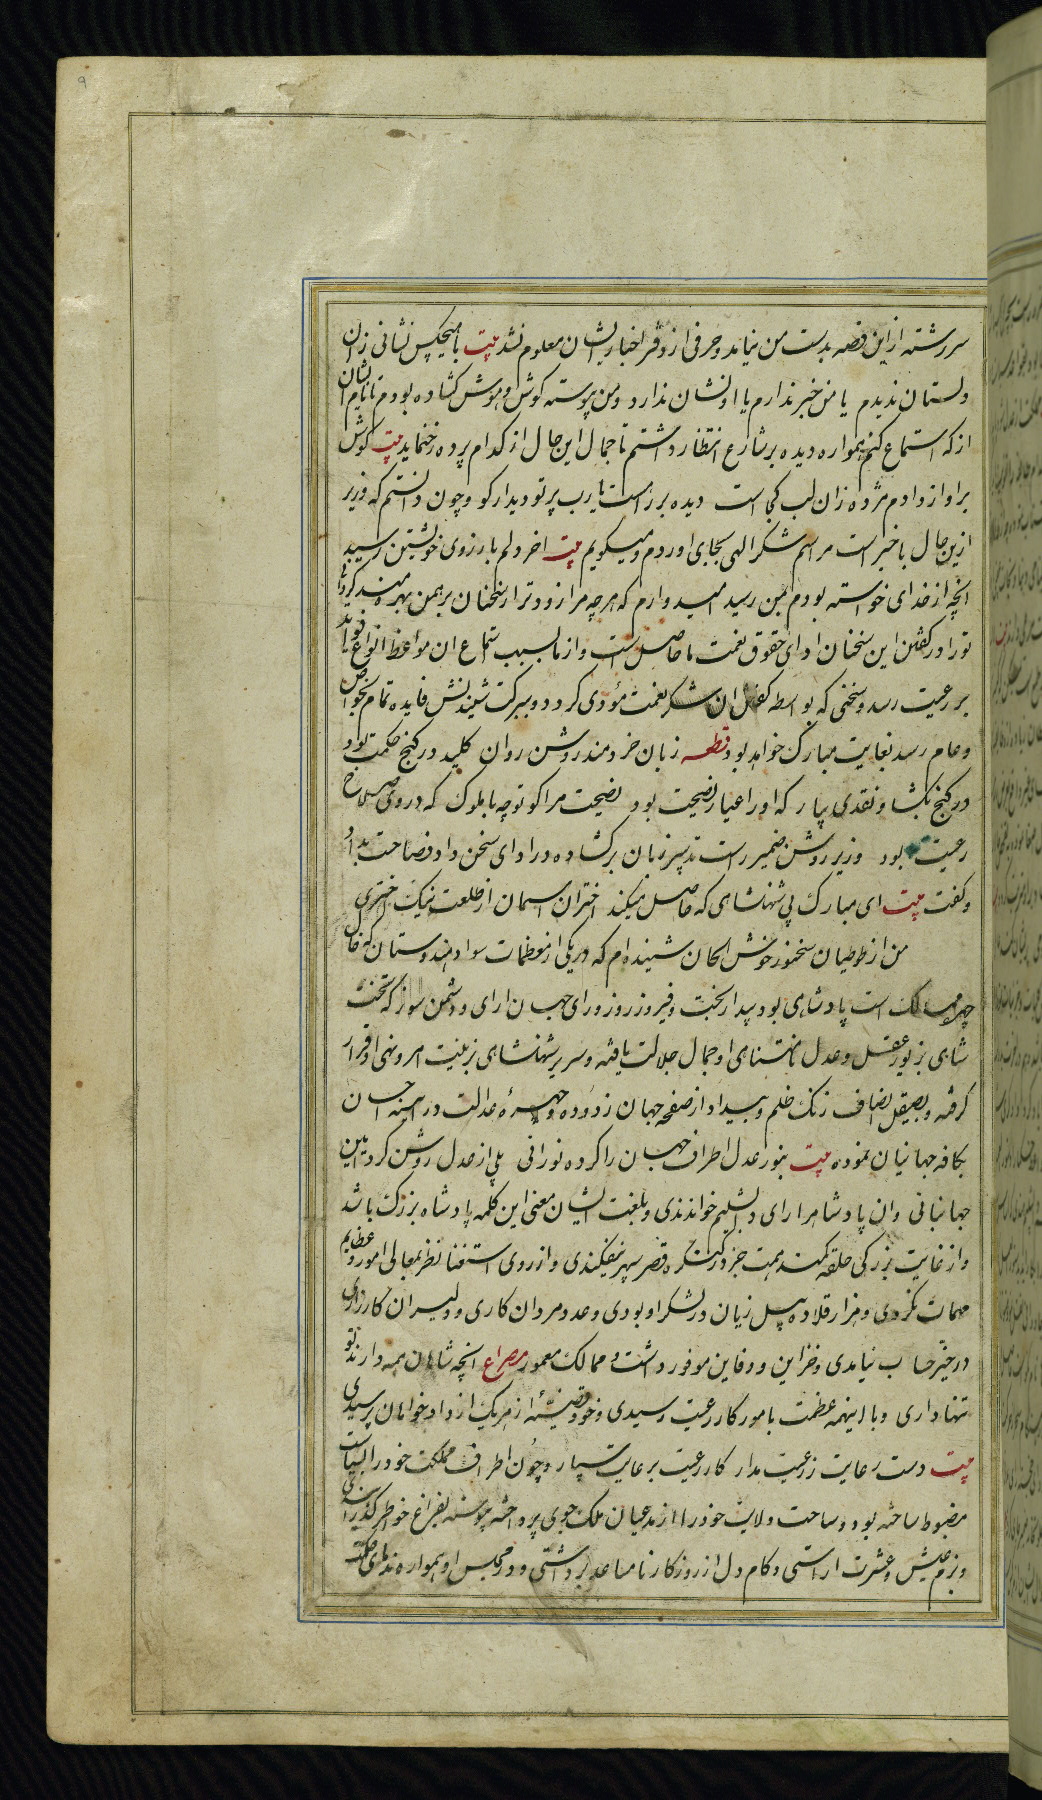 سررشته ازین قصه بدست من نیامد وحرفی از دفتر اخبار ایشان معلوم نشد بیت با هیچکس نشانی زان
دلستان ندیدم یا من خبر ندارم یا او نشان ندارد ومن پیوسته کوش هوش کشاده بودم تا نام ایشان
از که استماع کنم وهمواره دیده بر شارع انتظار داشتم تا جمال این حال از کدام پرده رخ نماید بیت کوش
بر اواز دادم مژده زان لب کی است دیده بر راهست یارب پرتو دیدار کو وچون دانستم که وزیر
ازین حال با خبر است مراسم شکر الهی بجای اوردم ومیکویم بیت اخر دلم بارزوی خویشتن رسید
انچه از خدای خواسته بودم بمن رسید امیدوارم که هرچه مرا زودتر از سخنان برهمن بهره مند کردانی
تورا در کفتن این سخنان ادای حقوق نعمت ما حاصل است واز ما بسبب استماع ان مواعظ انواع فواید
بر رعیت رسد وسخنی که بواسطه کفتن ان شکر نعمت مؤدی کردد وببرکت شنیدنش فایده تمام بخواص
وعام رسد بغایت مبارک خواهد بود قطعه زبان خردمند روشن روان کلید در کنج حکمت بود
در کنج بکشا ونقدی بیار که اورا عیار نصیحت بود نصیحت مرا کو توجه با ملوک که در وی صلاح
رعیت بود وزیر روشن ضمیر راست تدبیر زبان برکشاده در ادای سخن داد فصاحت بداد
وکفت بیت ای مبارک پی شهنشاهی که حاصل میکند اختران اسمان از طلعتت نیک اختری
من از طوطیان سخنور خوش الحان شنیده ام که در یکی از معظمات سواد هندوستان که خال
چهره ممالک است پادشاهی بود بیدار بخت وفیروز روز ورای جهان ارای ودشمن سوز که تخت
شاهی بزیور عقل وعدل نامتناهی او جمال جلالت یافته وسریر شهنشاهی بزینت امر ونهی او قرار
کرفته وبصیقل انصاف زنک ظلم وبیداد از صفحه جهان زدوده وچهرهٔ عدالت در اینه احسان
بکافه جهانیان نموده بیت بنور عدل اطراف جهان را کرده نورانی بلی از عدل روشن کرد ایین
جهانبانی وان پادشاه را رای دابشلیم خواندندی وبلغت ایشان معنی این کلمه پادشاه بزرک باشد
واز غایت بزرکی حلقه کمند همت جز در کنکره قصر سپهر نیفکندی واز روی استغنا نظر بمعالی امور وعظایم
مهمات نکردی وهزار قلاده پیل ژیان در لشکر او بودی وعدد مردان کاری ودلیران کارزاری
در حیز حساب نیامدی وخزاین ودفاین موفور داشت وممالک معمور مصراع انچه شاهان همه دارند تو
تنها داری وبا اینهمه عظمت بامور کار رعیت رسیدی وخود قضیهٔ از هریک از دادخواهان پرسیدی
بیت دست رعایت ز رعیت مدار کار رعیت برعایت سپار وچون اطراف مملکت خود را بسیاست
مضبوط ساخته بود وساحت ولایت خود را از مدعیان ملک جوی پرداخته پیوسته بفراغ خواطر کذرانیدی
وبزم عیش وعشرت اراستی وکام دل از روزکار نا مساعد برداشتی ودر مجلس او همواره ندمای حکمت